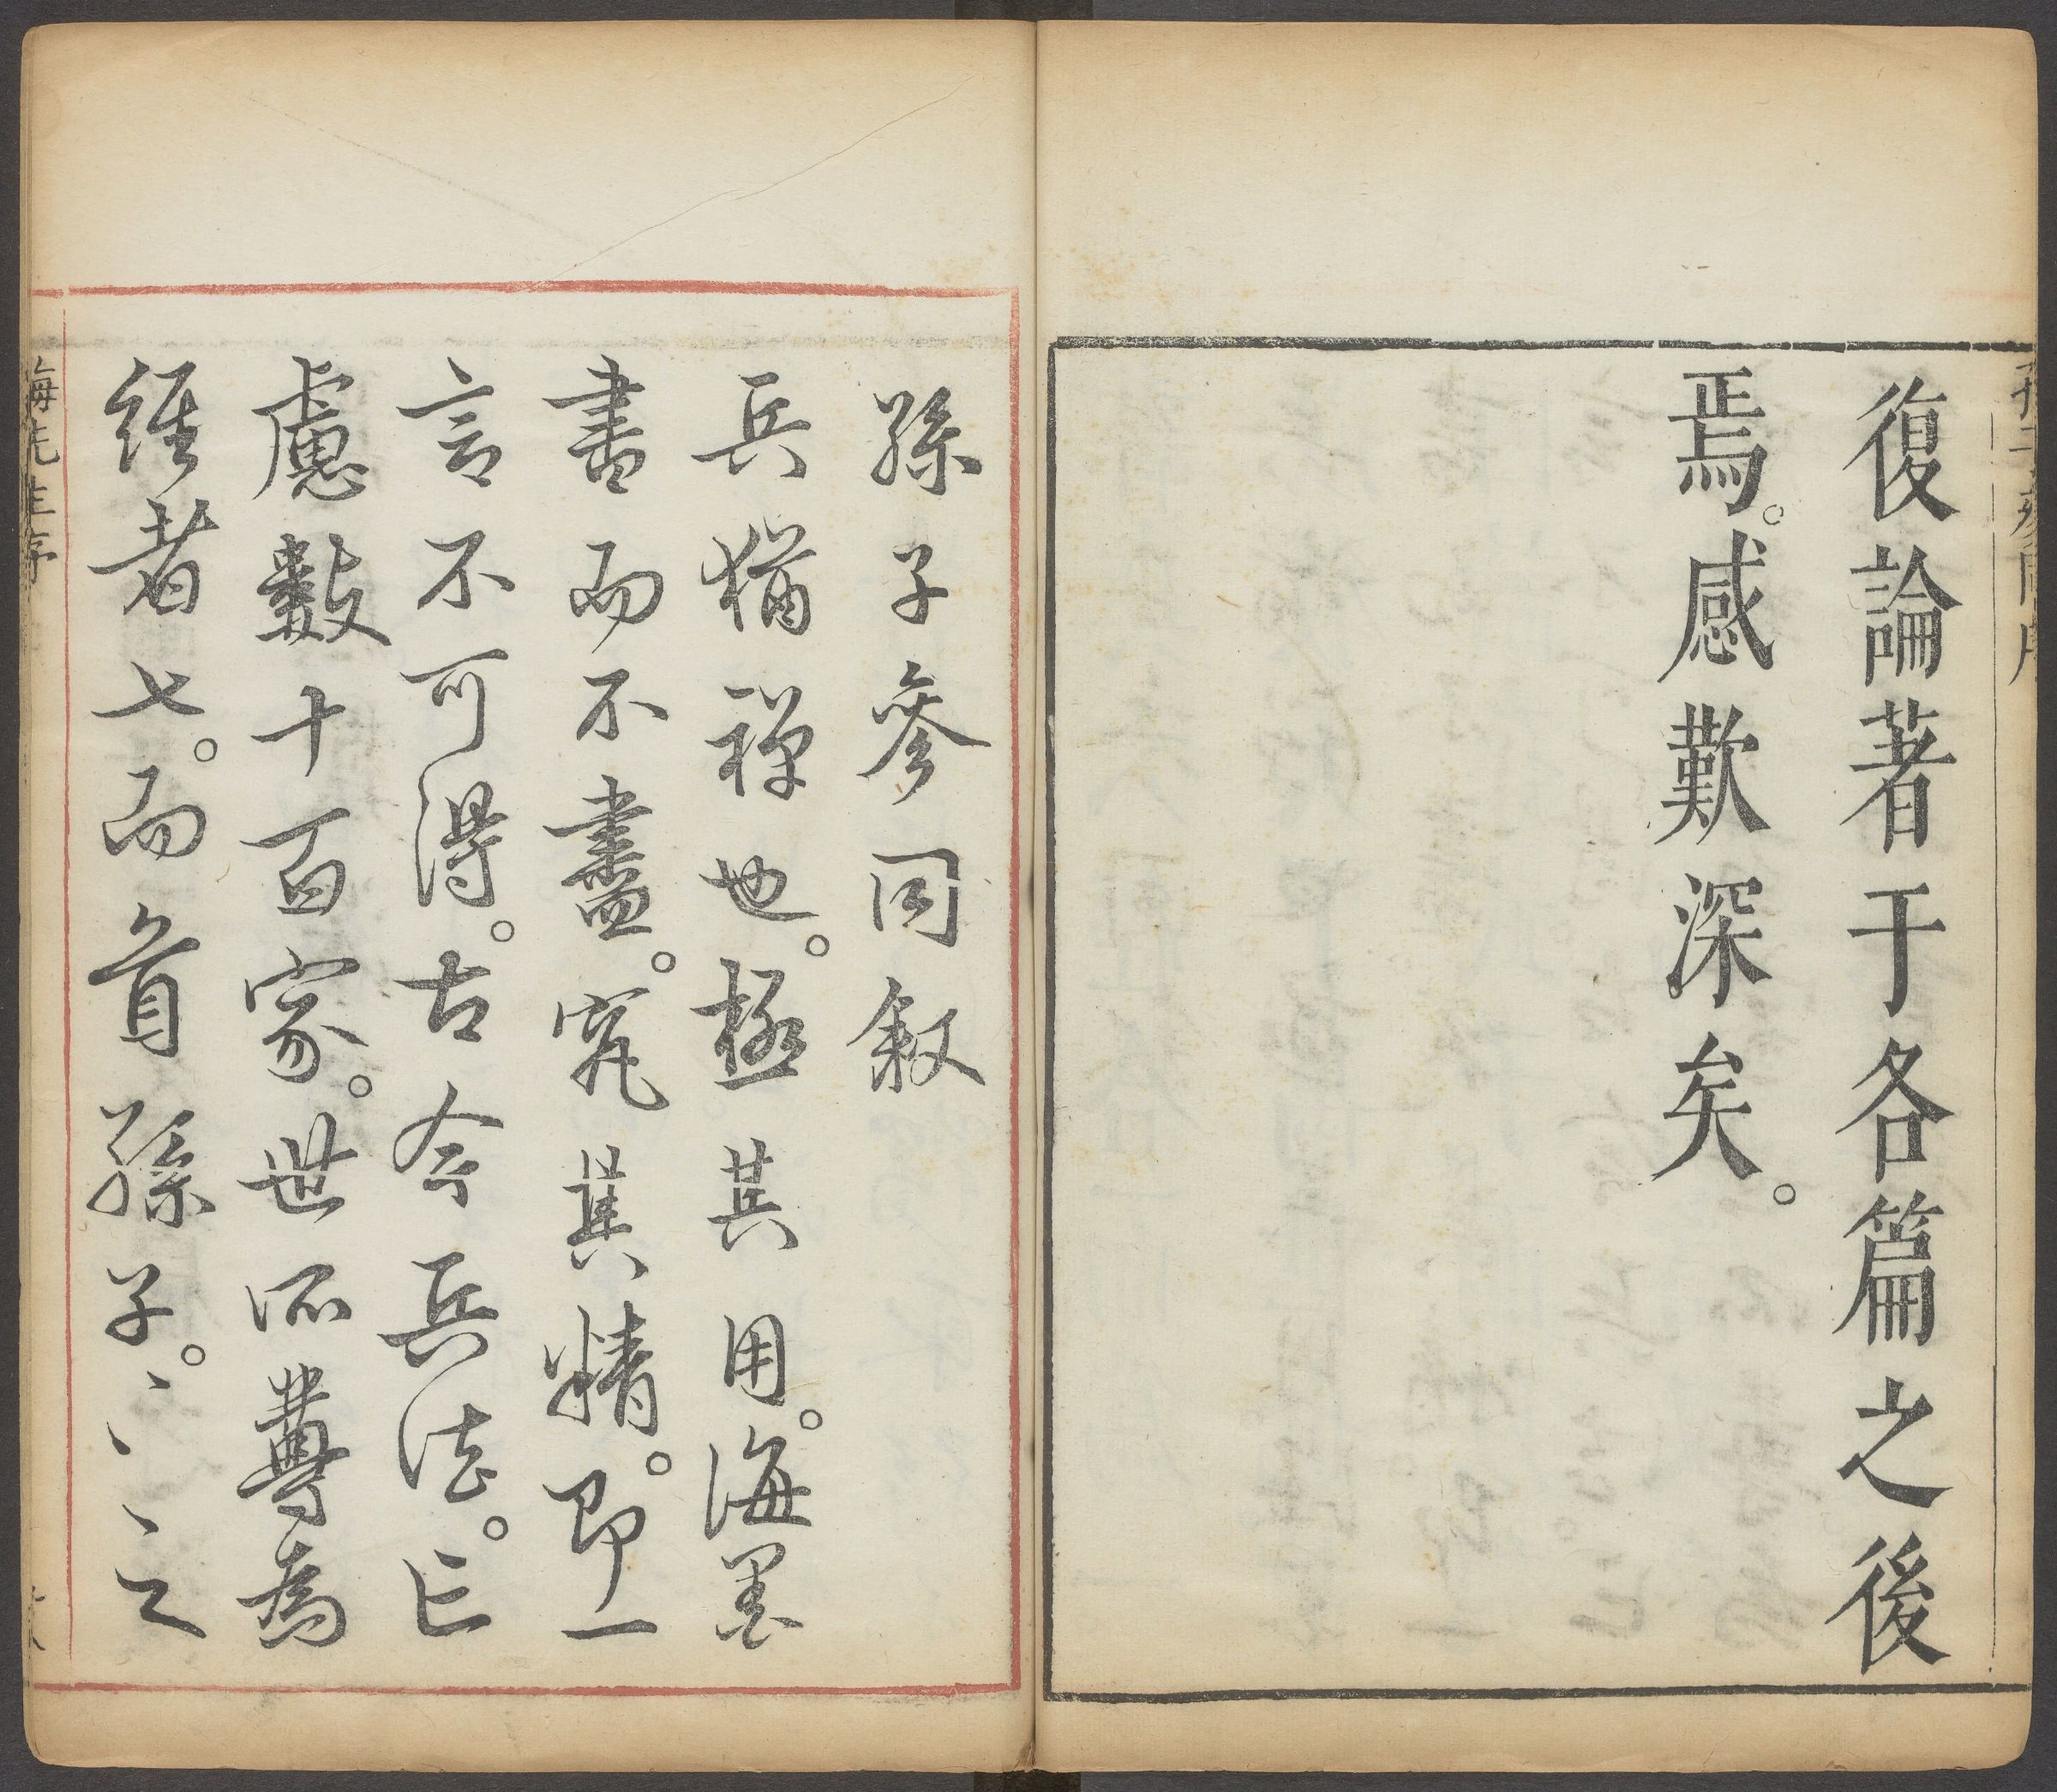 復論著于各篇之後
焉。感歎深矣。
孫子參同敘
兵猶禪也。極其用。海墨
書而不盡。究其精。即一
言不可得。古今兵法。亡
慮數十百家。世所尊為
經者七。而首孫子。孫子之
梅先生序